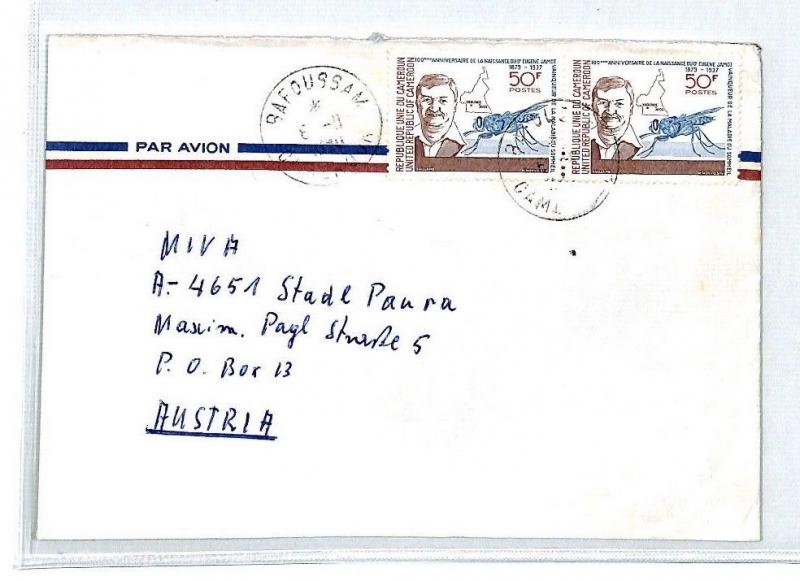 BAFOUSSAM
PAR AVION
100ème ANNIVERSAIRE DE LA NAISSANCE DU Dr EUGENE JAMOT
1879 - 1937
50F
POSTES
VAINQUEUR DE LA MALADIE DU SOMMEIL
REPUBLIQUE UNIE DU CAMEROUN
UNITED REPUBLIC OF CAMEROON
100ème ANNIVERSAIRE DE LA NAISSANCE DU Dr EUGENE JAMOT
1879 - 1937
50F
POSTES
VAINQUEUR DE LA MALADIE DU SOMMEIL
REPUBLIQUE UNIE DU CAMEROUN
UNITED REPUBLIC OF CAMEROON
MIVA
A-4651 Stadl Paura
Maxim. Pagl Straße 5
P. O. Box 13
AUSTRIA